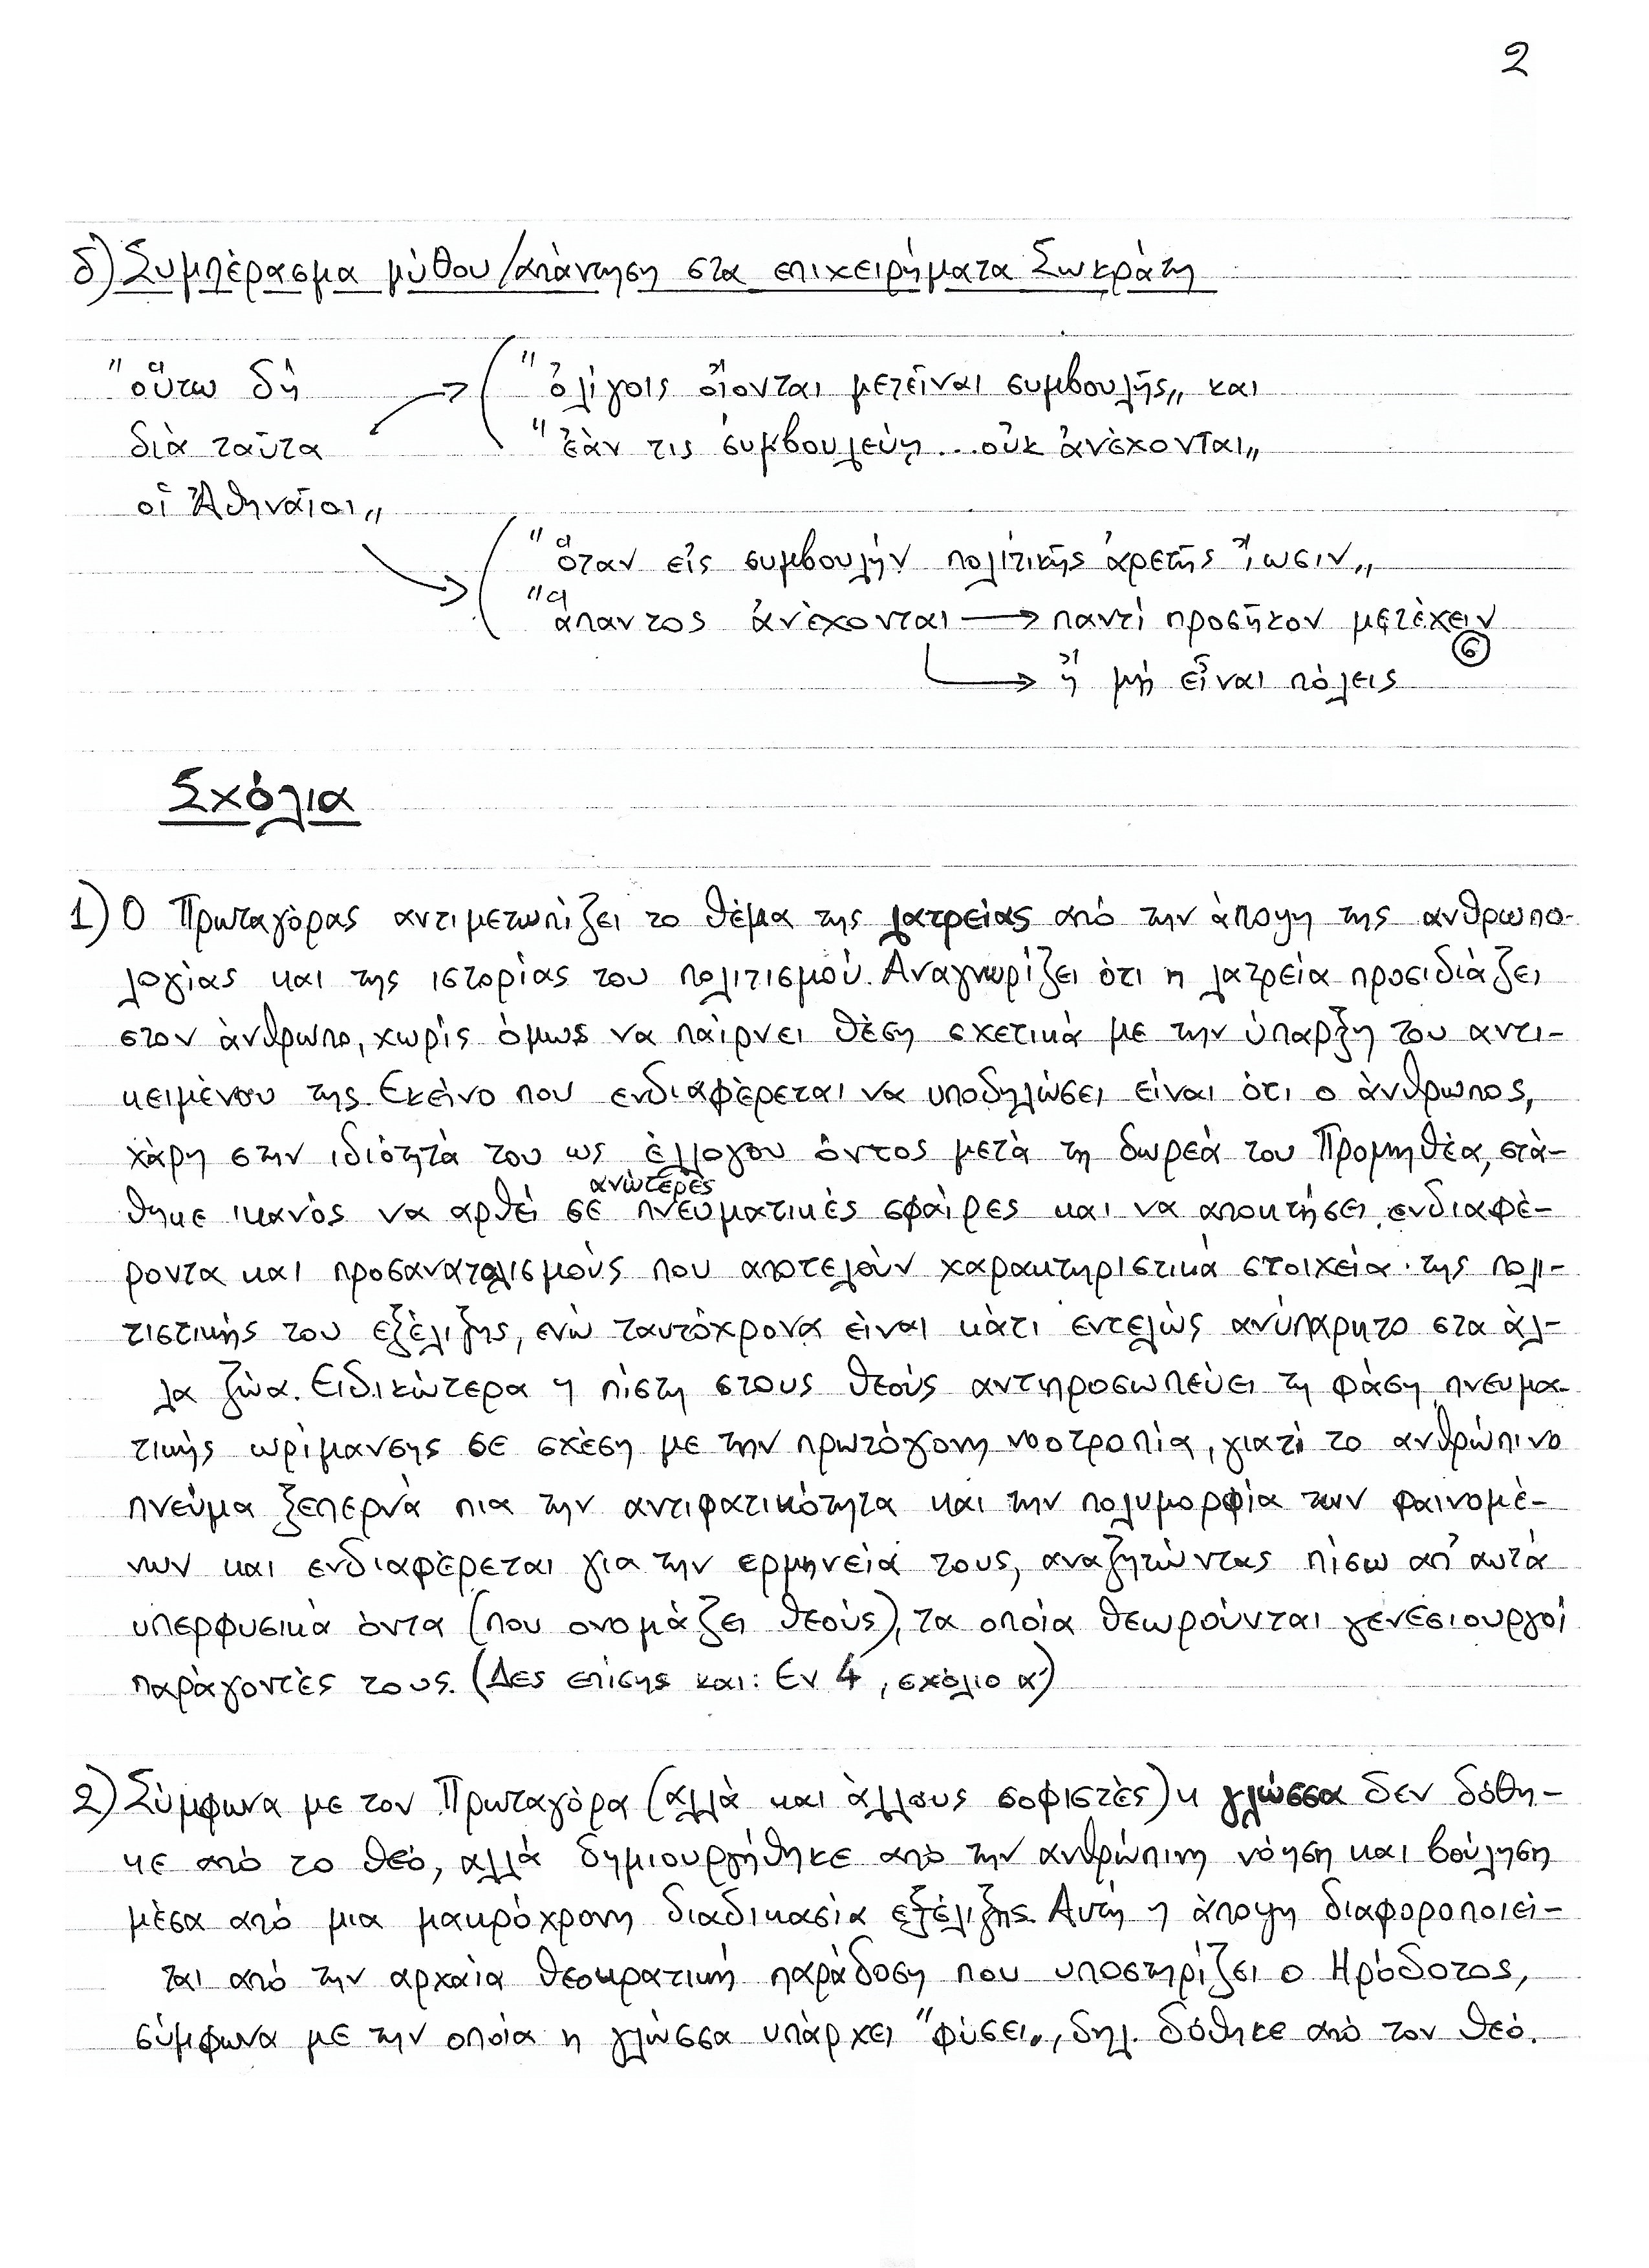 2
δ) Συμπέρασμα μύθου/απάντηση στα επιχειρήματα Σωκράτη
"οὕτω δή
διὰ ταῦτα
οἱ Ἀθηναῖοι„
"ὀλίγοις οἴονται μετεῖναι συμβουλῆς„ και
"ἐάν τις συμβουλεύῃ...οὐκ ἀνέχονται„
"ὅταν εἰς συμβουλήν πολιτικῆς ἀρετῆς ἴωσιν„
"ἅπαντος ἀνέχονται → παντί προσῆκον μετέχειν
⑥
→ ἤ μή εἶναι πόλεις
Σχόλια
1) Ο Πρωταγόρας αντιμετωπίζει το θέμα της λατρείας από την άποψη της ανθρωπο-
λογίας και της ιστορίας του πολιτισμού. Αναγνωρίζει ότι η λατρεία προσιδιάζει
στον άνθρωπο, χωρίς όμως να παίρνει θέση σχετικά με την ύπαρξη του αντι-
κειμένου της. Εκείνο που ενδιαφέρεται να υποδηλώσει είναι ότι ο άνθρωπος,
χάρη στην ιδιότητά του ως έλλογου όντος μετά τη δωρεά του Προμηθέα, στά-
θηκε ικανός να αρθεί σε ανώτερες πνευματικές σφαίρες και να αποκτήσει ενδιαφέ-
ροντα και προσανατολισμούς που αποτελούν χαρακτηριστικά στοιχεία της πολι-
τιστικής του εξέλιξης, ενώ ταυτόχρονα είναι κάτι εντελώς ανύπαρκτο στα άλ-
λα ζώα. Ειδικώτερα η πίστη στους θεούς αντιπροσωπεύει τη φάση πνευμα-
τικής ωρίμανσης σε σχέση με την πρωτόγονη νοοτροπία, γιατί το ανθρώπινο
πνεύμα ξεπερνά πια την αντιφατικότητα και την πολυμορφία των φαινομέ-
νων και ενδιαφέρεται για την ερμηνεία τους, αναζητώντας πίσω απ' αυτά
υπερφυσικά όντα (που ονομάζει θεούς), τα οποία θεωρούνται γενεσιουργοί
παράγοντές τους. (Δες επίσης και: Εν 4, σχόλιο α')
2) Σύμφωνα με τον Πρωταγόρα (αλλά και άλλους σοφιστές) η γλώσσα δεν δόθη-
κε από το θεό, αλλά δημιουργήθηκε από την ανθρώπινη νόηση και βούληση
μέσα από μια μακρόχρονη διαδικασία εξέλιξης. Αυτή η άποψη διαφοροποιεί-
ται από την αρχαία θεοκρατική παράδοση που υποστηρίζει ο Ηρόδοτος,
σύμφωνα με την οποία η γλώσσα υπάρχει "φύσει„, δηλ. δόθηκε από τον θεό.